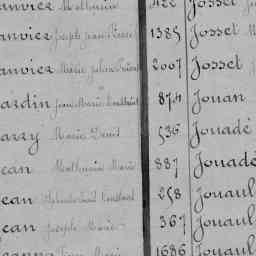 anviez Mathurin 422 Josset
anviez Joseph Jean Pierre 1385 Josset
anviez Marie Julien 2007 Josset
ardin Jean Marie 874 Jouan
arzy Marie David 536 Jouadé
ean Mathurin Marie 887 Jouadé
ean Constant 258 Jouaul
ean Joseph Marie 367 Jouaul
Marie 1686 Jouaul